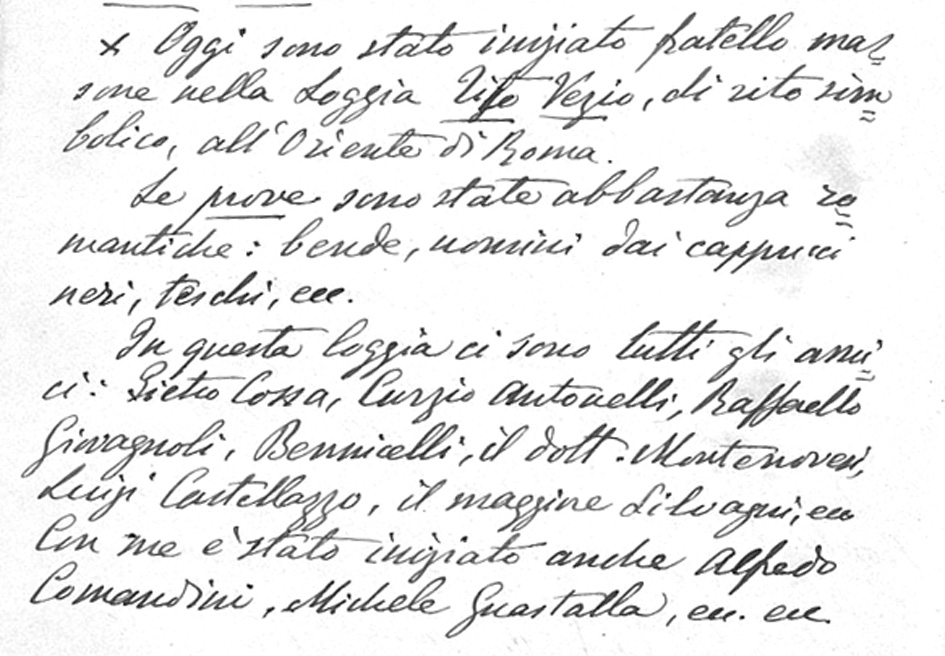 x Oggi sono stato iniziato fratello mas=
sone nella Loggia Tito Vezio, di rito sim=
bolico, all'Oriente di Roma.
Le prove sono state abbastanza ro=
mantiche: bende, uomini dai cappucci
neri, teschi, ecc.
In questa loggia ci sono tutti gli ami=
ci: Pietro Cossa, Curzio Antonelli, Raffaello
Giovagnoli, Bennicelli, il dott. Montenovesi,
Luigi Castellazzo, il maggiore Silvagni, ecc
Con me è stato iniziato anche Alfredo
Comandini, Michele Guastalla, ecc. ecc.